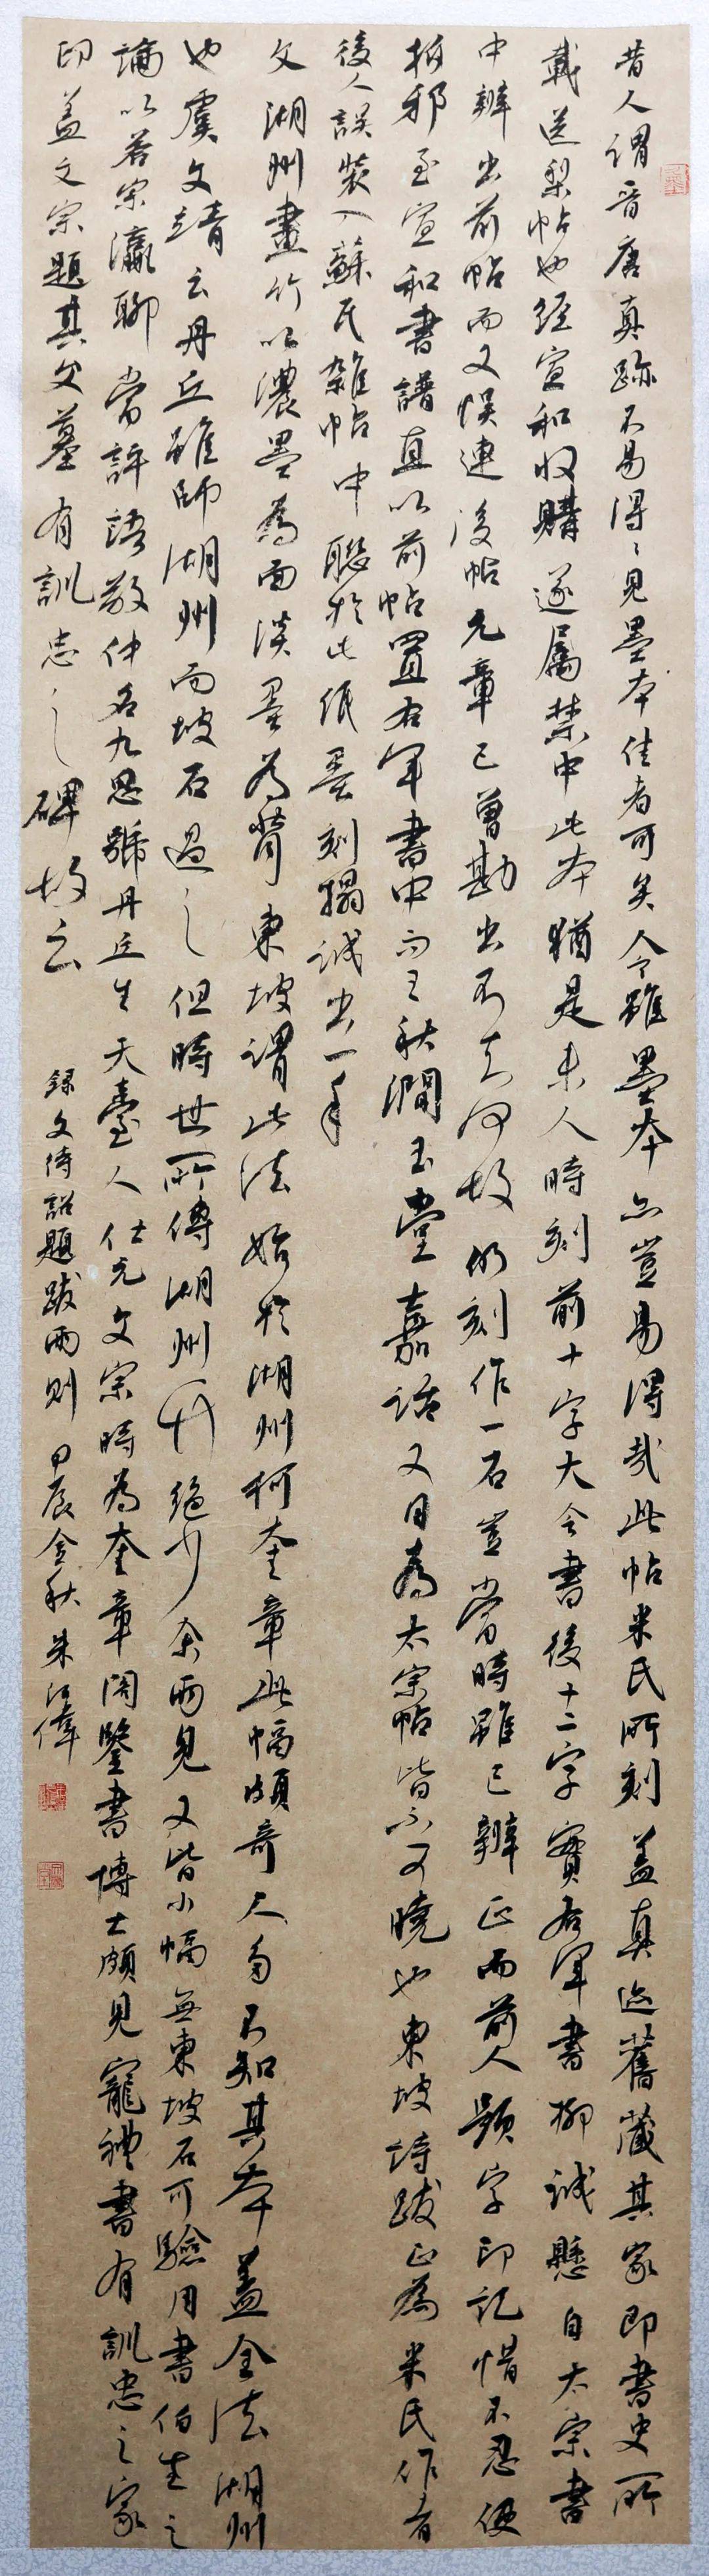 昔人謂晉唐真跡不易得得見墨本佳者可矣今雖墨本亦豈易得哉此帖米氏所刻蓋真迹舊藏其家即書史所
載送梨帖也經宣和收購遂属禁中此本猶是未入時刻前十字大令書後十二字實右軍書柳誠懸自太宗書
中辨出前帖而又悮連後帖元章已曾勘出不知何故仍刻作一石豈當時雖已辨正而前人題字印記惜不忍便
拆邪至宣和書譜直以前帖置右軍書中而王秋澗玉堂嘉話又目為太宗帖皆不可曉也東坡詩跋正為米氏作者
後人誤裝入蘇氏雜帖中聯於此紙墨刻搨誠出一手
文湖州畫竹以濃墨為面淡墨為背東坡謂此法始於湖州柯奎章此幅頗奇人多不知其本蓋全法湖州
也虞文靖云丹丘雖師湖州而坡石過之但時世所傳湖州竹絕少余兩見又皆小幅無東坡石可驗用書伯生之
論以若宗瀛聊當評語敬仲名九思號丹丘生天臺人仕元文宗時為奎章閣鑒書博士頗見寵禮書有訓忠之家
印蓋文宗題其父墓有訓忠之碑故云
錄文待詔題跋兩則 甲辰金秋朱江偉